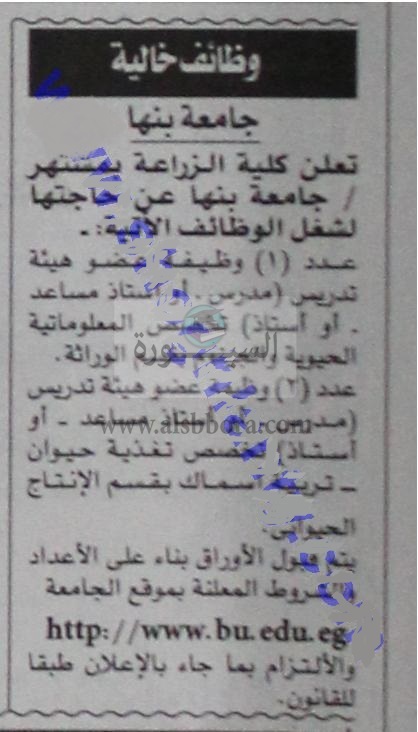 وظائف خالية
جامعة بنها
تعلن كلية الزراعة بمشتهر
/ جامعة بنها عن حاجتها
لشغل الوظائف الآتية: ـ
عدد (١) وظيفة عضو هيئة
تدريس (مدرس ـ أو أستاذ مساعد
ـ أو أستاذ) تخصص المعلوماتية
الحيوية والجينوم بقسم الوراثة.
السبورة
عدد (٢) وظيفة عضو هيئة تدريس
www.alsbbora.com
(مدرس ـ أو أستاذ مساعد ـ أو
أستاذ) تخصص تغذية حيوان
ـ تربية أسماك بقسم الإنتاج
الحيوانى.
يتم قبول الأوراق بناء على الأعداد
والشروط المعلنة بموقع الجامعة
http://www.bu.edu.eg
والألتزام بما جاء بالإعلان طبقا
للقانون.